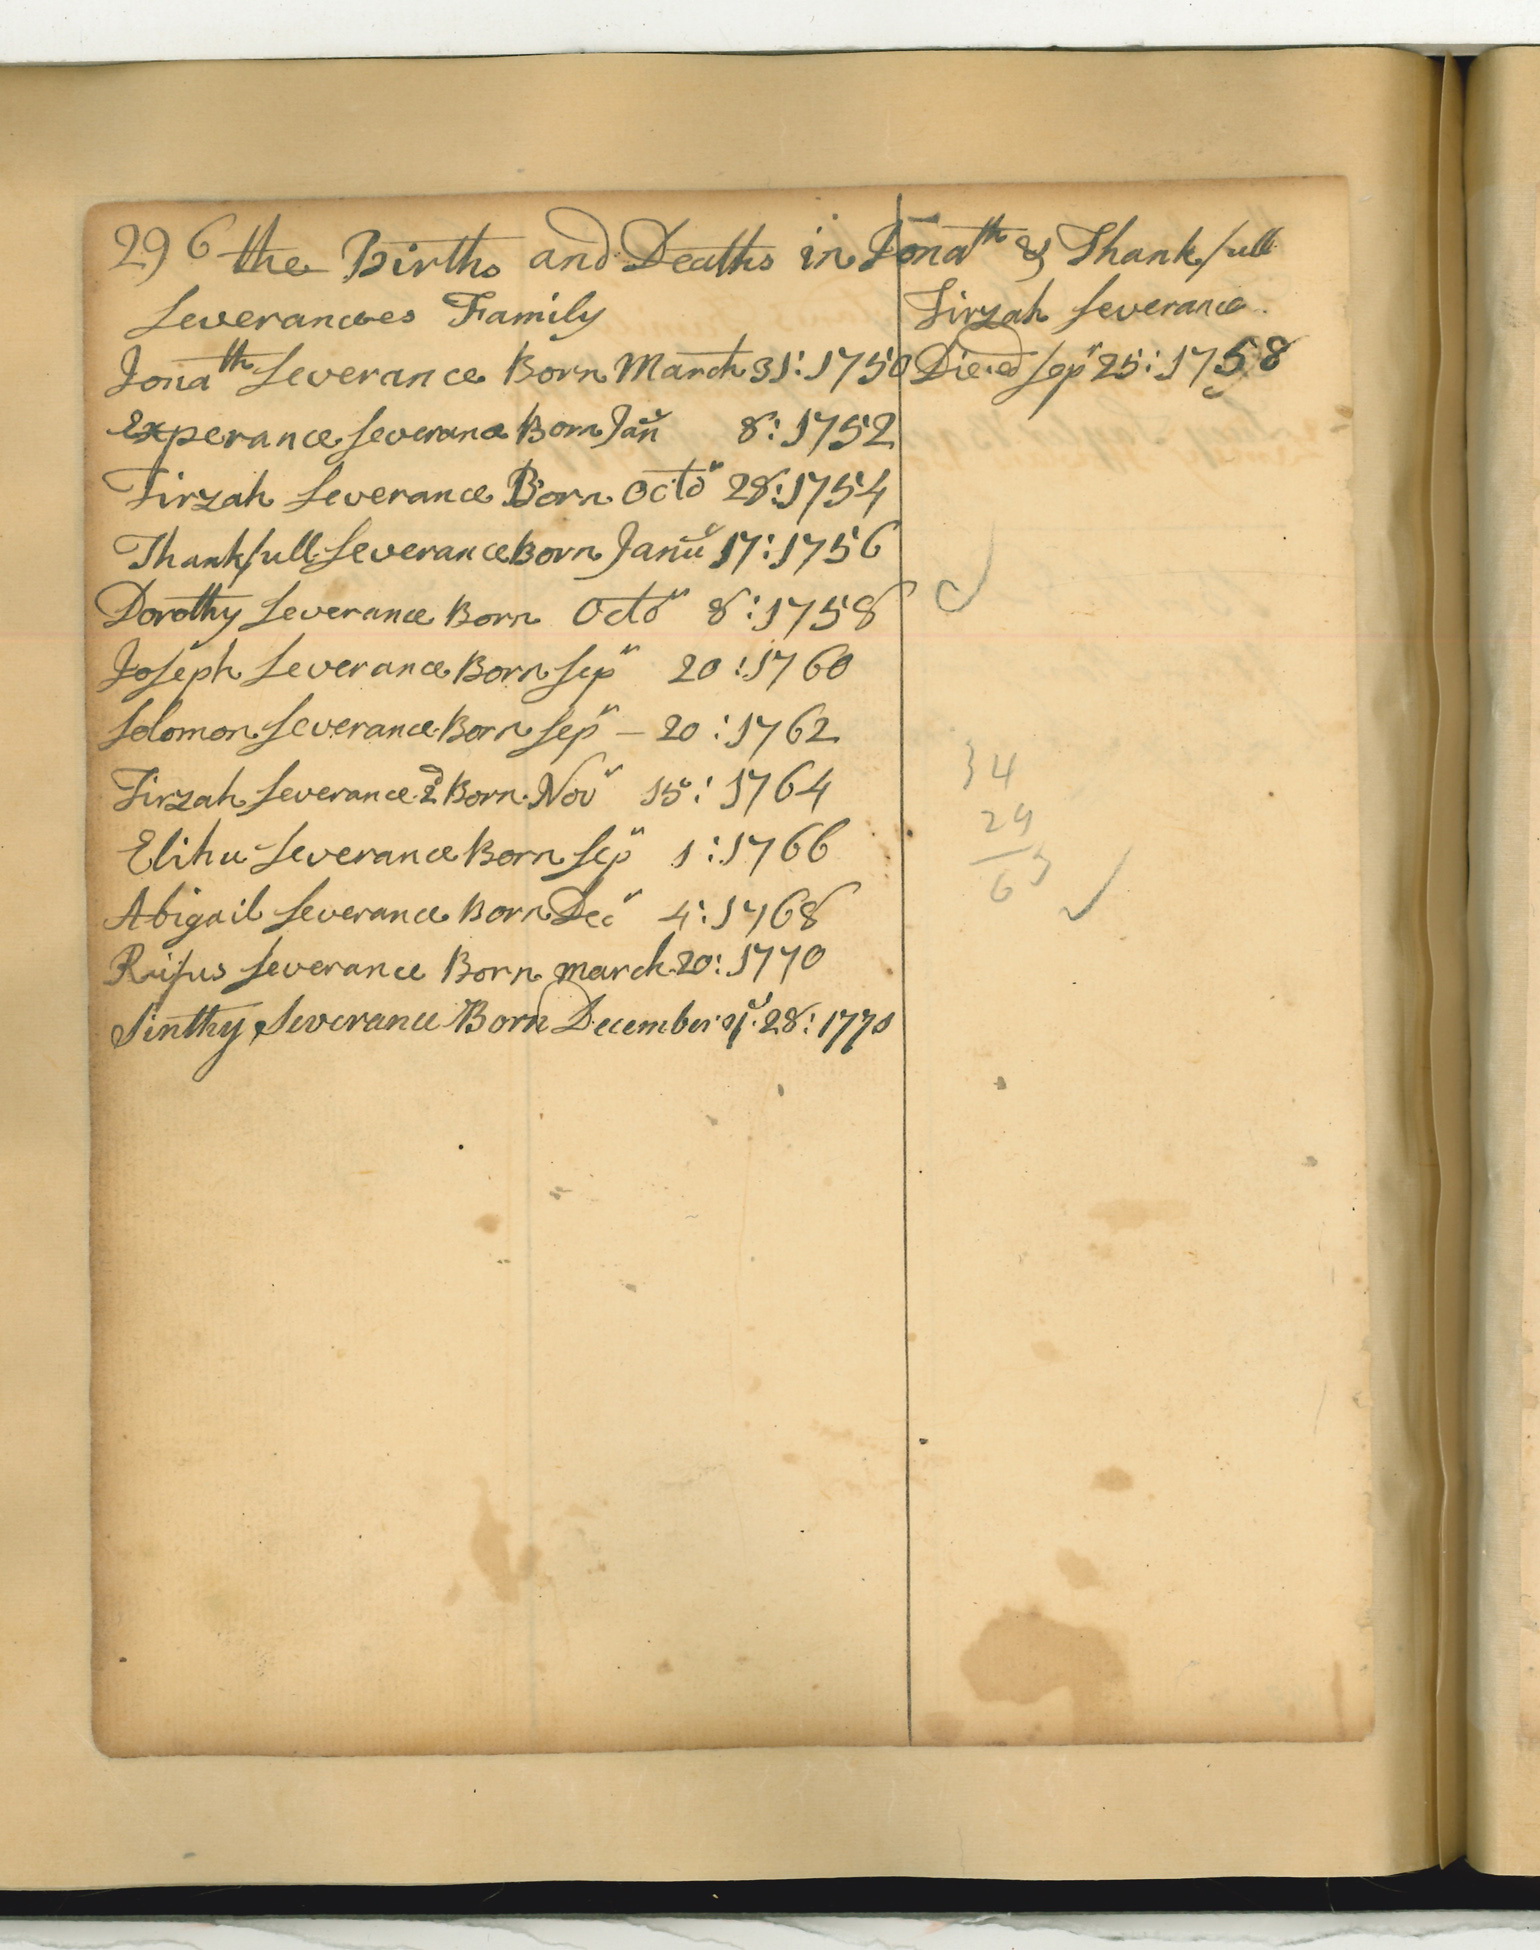 296 the Births and Deaths in Jonath & Thankfull
Severances Family
Jonath Severance Born March 31: 1750
Experance Severance Born Jan 8: 1752
Tirzah Severance Born Octo 28: 1754
Thankfull Severance Born Janu 17: 1756
Dorothy Severance Born Octo 8: 1758
Joseph Severance Born Sep 20: 1760
Solomon Severance Born Sep – 20: 1762
Tirzah Severance 2d Born Nov 15: 1764
Elihu Severance Born Sep 1: 1766
Abigail Severance Born Dec 4: 1768
Rufus Severance Born march 20: 1770
Sinthy Severance Born December ye 28: 1770
Tirzah Severance
Died Sep 25: 1758
34
29
63